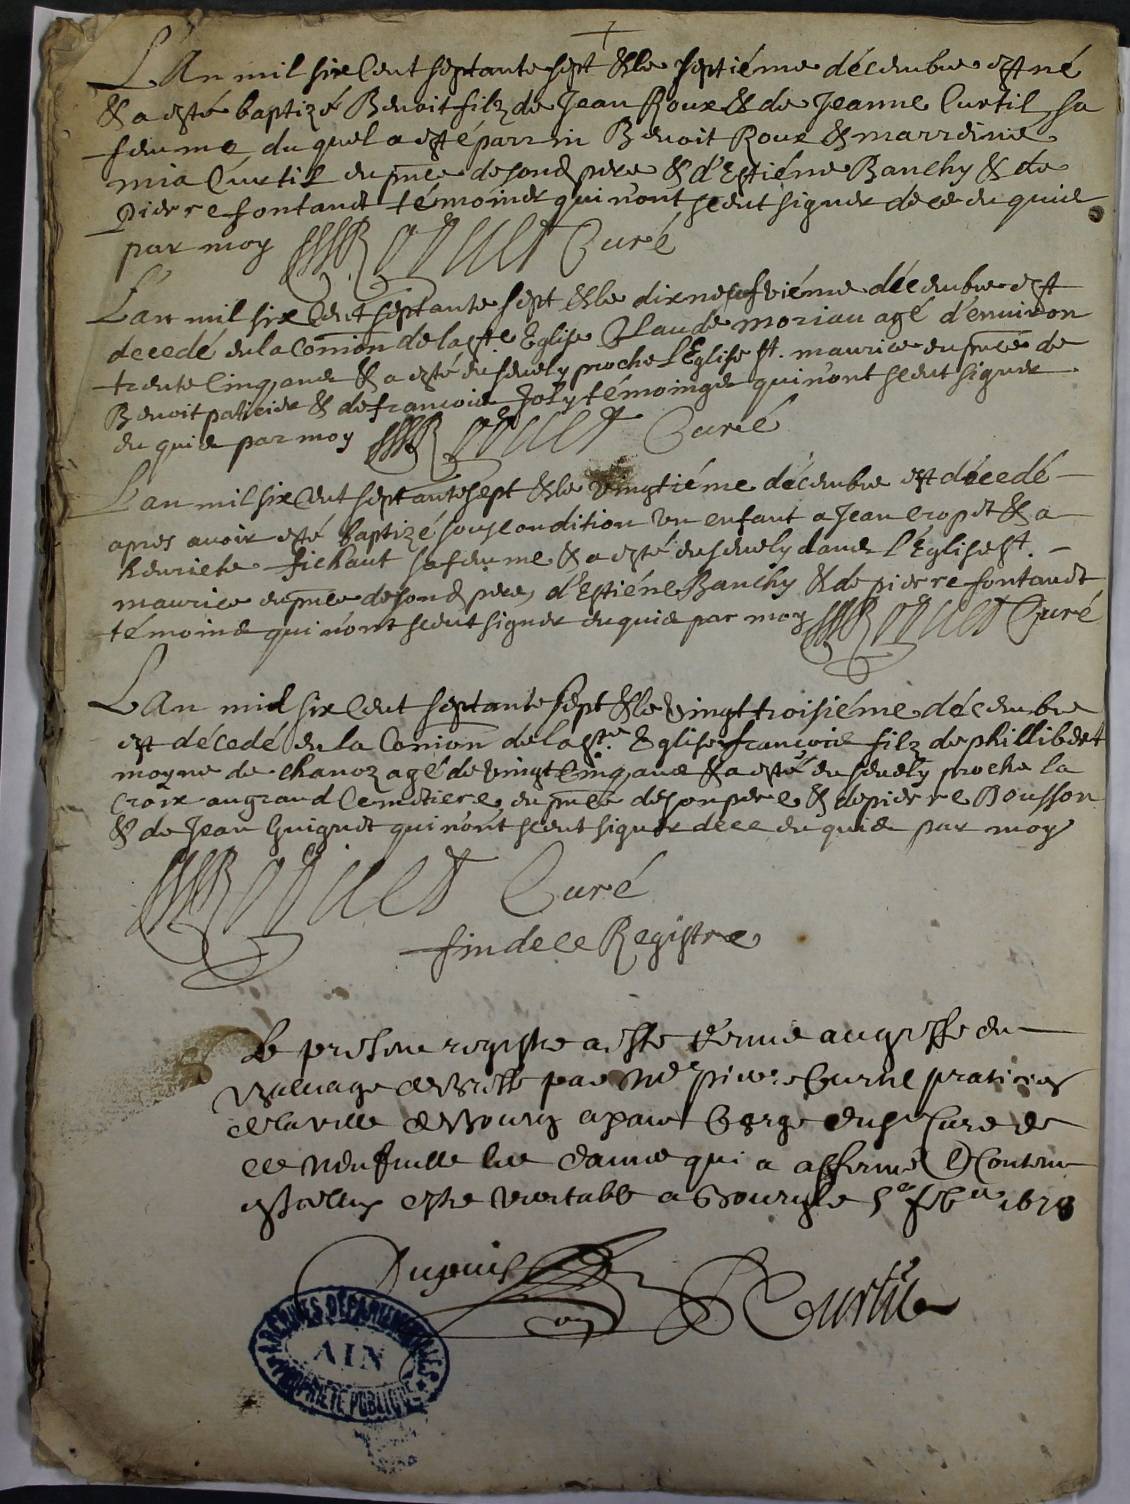 L'An mil six Cent septante sept & le septiéme décembre est né
& a esté baptizé Benoit filz de Jean Roux & de Jeanne Curtil sa
femme duquel a esté parrin Benoit Roux & marreine
mia Curtil en pnce de sond pere & d'Estiéne Banchy & de
Pierre fontanet témoins qui n'ont sceut signer de ce enquis
par moy Curé
L'an mil six Cent septante sept & le dixneufviéme décembre est
decedé en la Comion de la Ste Eglise Claude moriau agé d'environ
trente Cinq ans & a esté ensevely proche l'Eglise St. maurice en pnce de
Benoit paticier & de francois Joly témoings qui n'ont sceut signer
enquis par moy Curé
L'an mil six Cent septante sept & le vingtiéme décembre est décedé
apres avoir esté baptizé sous condition un enfant a Jean cropet & a
henriete fichaut sa femme & a esté ensevely dans l'Eglise St.
maurice en pnce de sond pere, d'Estiéne Banchy & de pierre fontanet
témoins qui n'ont sceut signer enquis par moy Curé
L'An mil six Cent septante sept & le vingt troisiéme décembre
est décedé en la Comion de la Ste Eglise francois filz de phillibert
moyne de chanoz agé de vingt Cinq ans & a esté ensevely proche la
Croix au grand Cemetiere en pnce de son pere & de pierre Bousson
& de Jean Guignet qui n'ont sceut signer de ce enquis par moy
Curé
fin de ce Registre
Le present registre a esté remis au greffe du
Balliage de Bresse par Me pierre Curtil praticien
de la ville de Bourg ayant Charge du sr Curé de
de qui a affirmé le Contenu
estre veritable a Bourg le 5e feb 1678
Dupuis Curtil
ARCHIVES DÉPARTEMENTALES
AIN
PROPRIÉTÉ PUBLIQUE